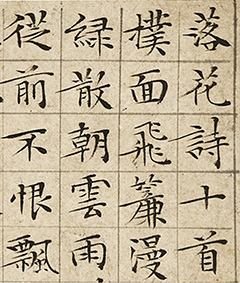 落花詩十首
撲面飛簾漫
綠散朝雲雨
從前不恨飄